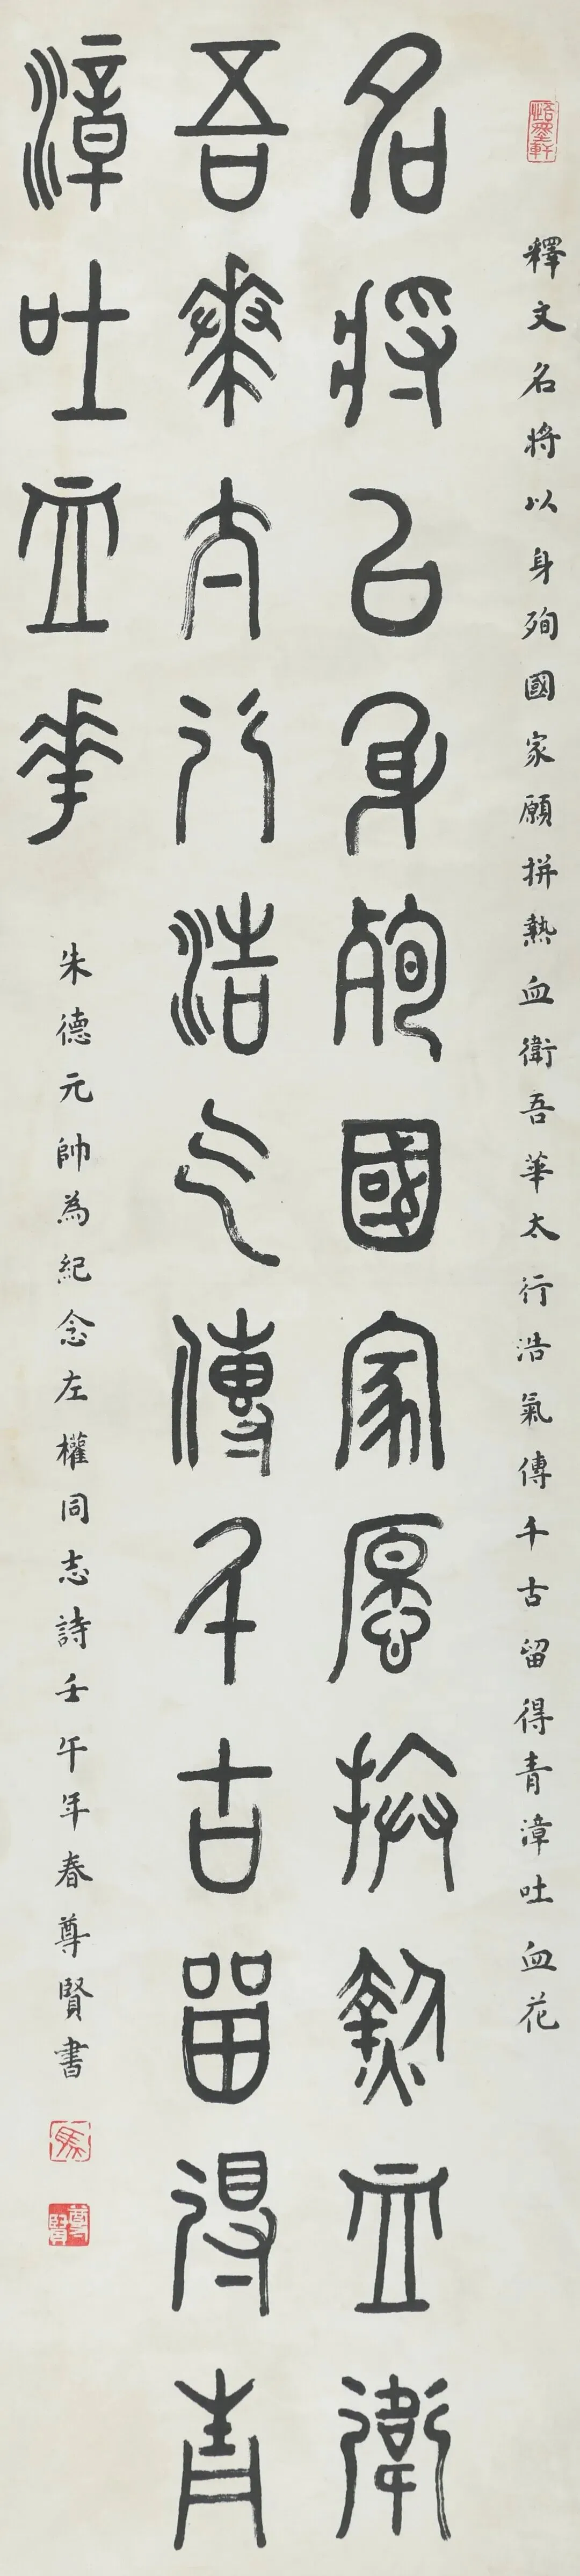 釋文名將以身殉國家願拼熱血衛吾華太行浩氣傳千古留得青漳吐血花
名將以身殉國家愿拼熱血衛
吾華太行浩气傳千古留得青
漳吐血花
朱德元帥為紀念左權同志詩壬午年春尊賢書
馬
尊賢